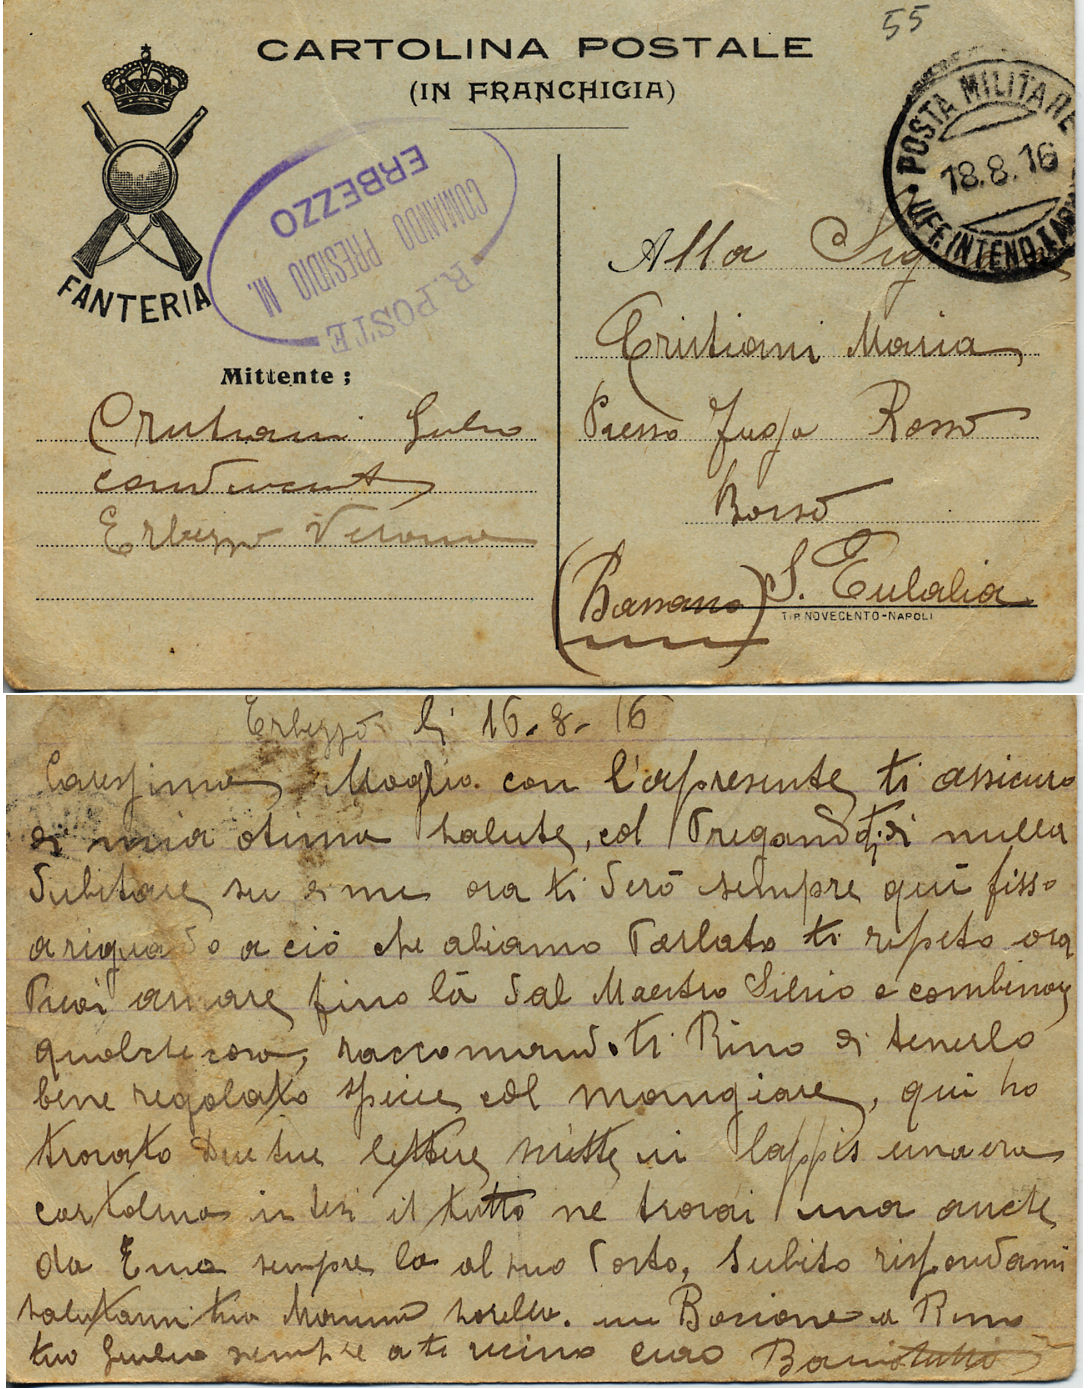 55
CARTOLINA POSTALE
(IN FRANCHIGIA)
POSTA MILITARE
18.8.16
UFF. INTEND.
FANTERIA
R. POSTE
COMANDO PRESIDIO M.
ERBEZZO
Mittente ;
Cristiani Giulio
Erbezzo Verona
Alla Sig
Cristiani Maria
Presso Rosso
Borso
(Bassano) S. Eulalia
TIP. NOVECENTO-NAPOLI
Erbezzo li 16-8-16
Carissima Moglie. con l'apresente ti assicuro
di mia otima salute, col Pregandoti di nulla
dubitare su di me ora ti derò sempre qui fisso
ariguado a ciò che abiamo Parlato ti repeto ora
Puoi andare fino là dal Maestro Silvio e combinar
qualchecosa, raccomandoti Rino di tenerlo
bene regolato specie col mangiare, qui ho
trovato due tue lettere in lappis una era
cartolina intesi il tutto ne trovai una anche
da Ema sempre la al suo Posto, Subito rispondami
salutami tua Mamma sorella. un Bacione a Rino
tuo Giulio sempre a te vicino caro